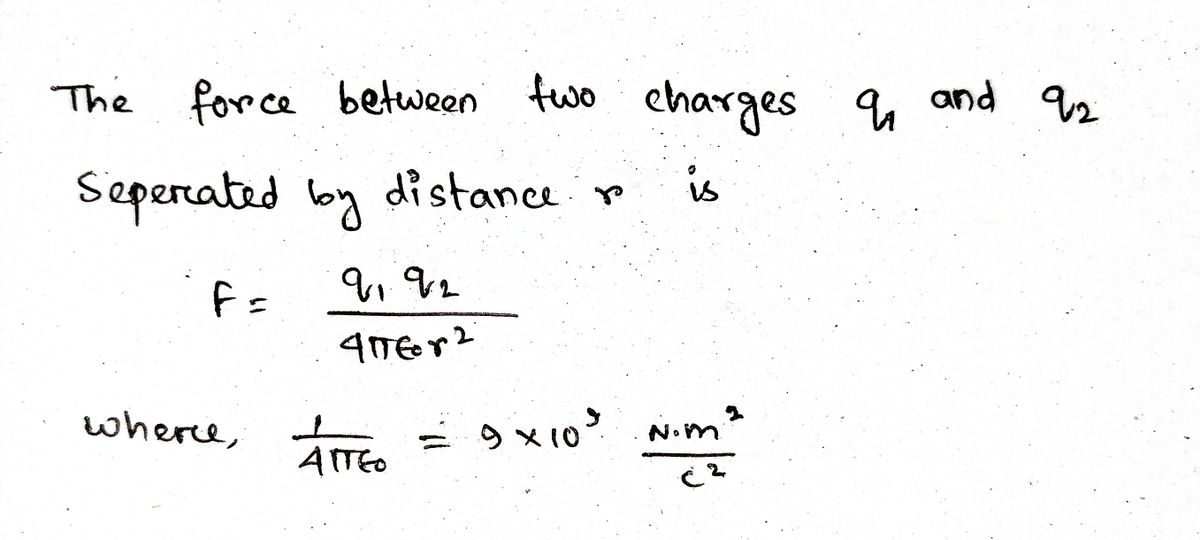 The force between two charges q₁ and q₂
Seperated by distance r is
F = q₁ q₂ / 4πϵ₀r²
where, 1 / 4πϵ₀ = 9 × 10⁹ N·m² / C²